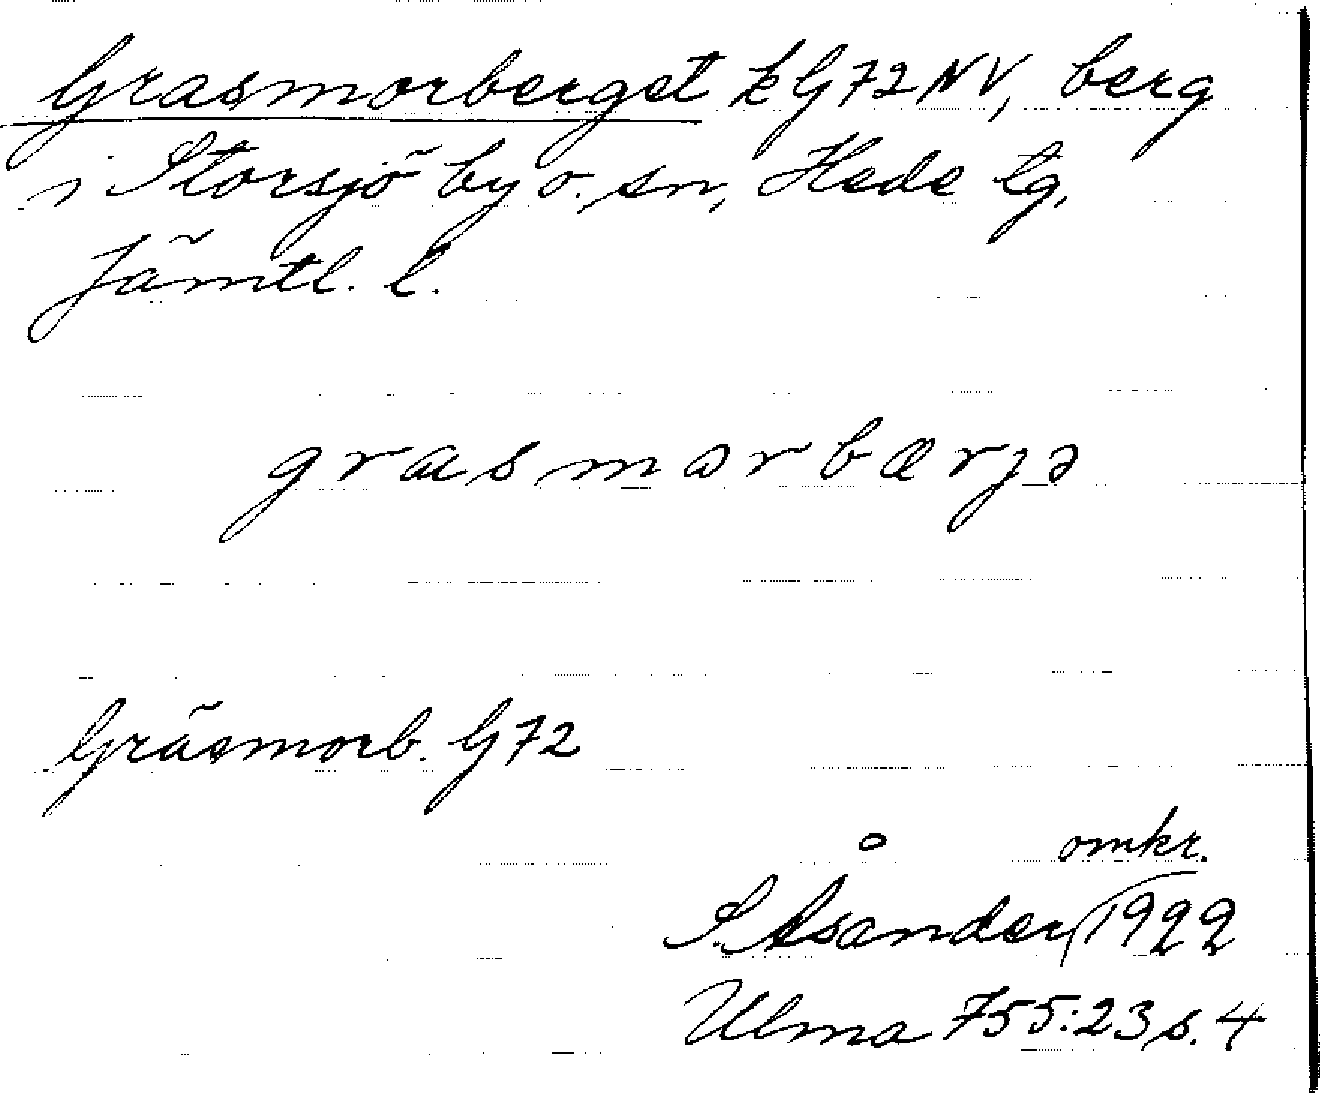 Grasmorberget k G72NV, berg
i Storsjö by o. sn, Hede tg,
Jämtl. l.
grasmɔrbærjə
Gräsmorb. G72
omkr.
S. Åsander 1922
Ulma 755:23 s. 4